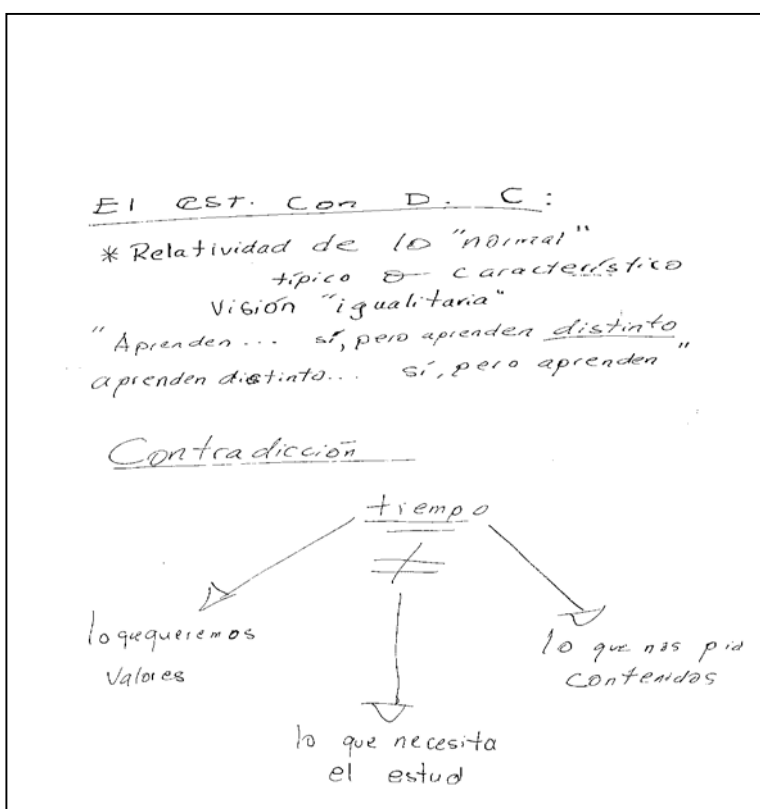 El est. con D. C:
* Relatividad de lo "normal"
típico o característico
Visión "igualitaria"
"Aprenden... sí, pero aprenden distinto
aprenden distinto... sí, pero aprenden"
Contradicción
tiempo
≠
lo que queremos
Valores
lo que nos pid
contenidos
lo que necesita
el estud